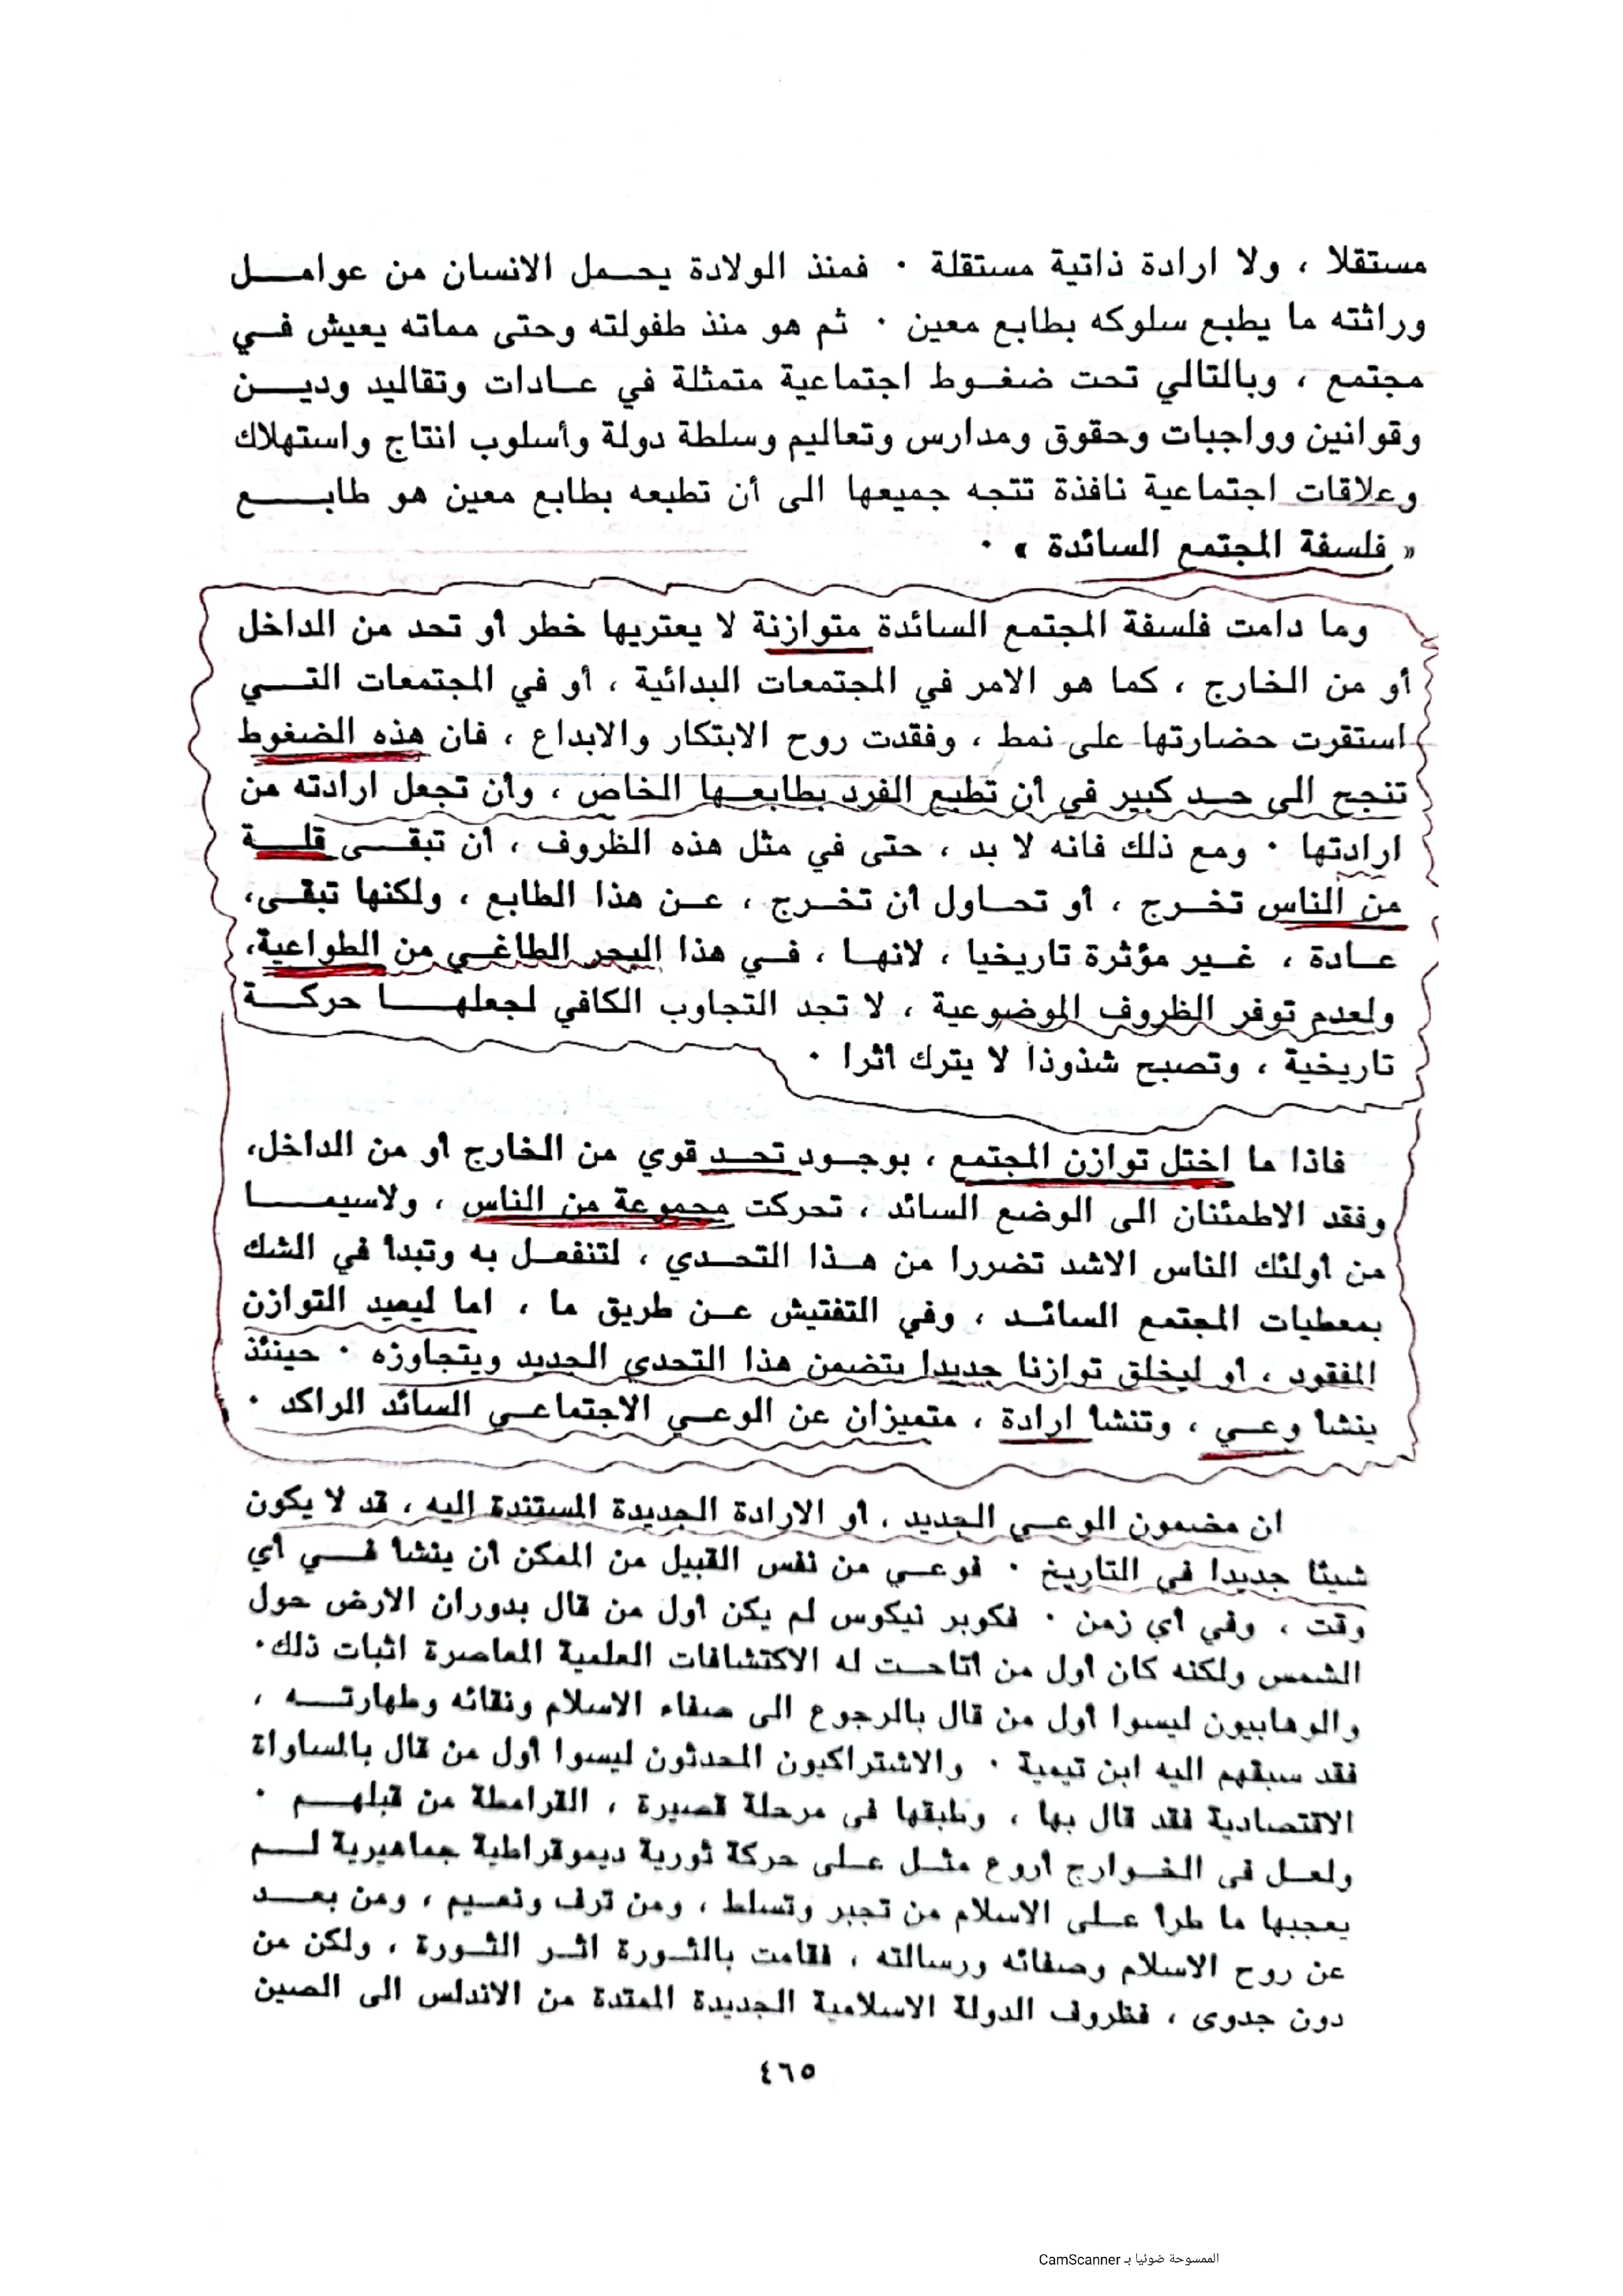 مستقلا ، ولا ارادة ذاتية مستقلة . فمنذ الولادة يحمل الانسان من عوامل
وراثته ما يطبع سلوكه بطابع معين . ثم هو منذ طفولته وحتى مماته يعيش في
مجتمع ، وبالتالي تحت ضغوط اجتماعية متمثلة في عادات وتقاليد ودين
وقوانين وواجبات وحقوق ومدارس وتعاليم وسلطة دولة وأسلوب انتاج واستهلاك
وعلاقات اجتماعية نافذة تتجه جميعها الى أن تطبعه بطابع معين هو طابع
« فلسفة المجتمع السائدة » .
وما دامت فلسفة المجتمع السائدة متوازنة لا يعتريها خطر أو تحد من الداخل
أو من الخارج ، كما هو الامر في المجتمعات البدائية ، أو في المجتمعات التي
استقرت حضارتها على نمط ، وفقدت روح الابتكار والابداع ، فان هذه الضغوط
تنجح الى حد كبير في أن تطبع الفرد بطابعها الخاص ، وأن تجعل ارادته من
ارادتها . ومع ذلك فانه لا بد ، حتى في مثل هذه الظروف ، أن تبقى قلة
من الناس تخرج ، أو تحاول أن تخرج ، عن هذا الطابع ، ولكنها تبقى،
عادة ، غير مؤثرة تاريخيا ، لانها ، في هذا البحر الطاغي من الطواعية،
ولعدم توفر الظروف الموضوعية ، لا تجد التجاوب الكافي لجعلها حركة
تاريخية ، وتصبح شذوذا لا يترك أثرا .
فاذا ما اختل توازن المجتمع ، بوجود تحد قوي من الخارج أو من الداخل،
وفقد الاطمئنان الى الوضع السائد ، تحركت مجموعة من الناس ، ولاسيما
من أولئك الناس الاشد تضررا من هذا التحدي ، لتنفعل به وتبدأ في الشك
بمعطيات المجتمع السائد ، وفي التفتيش عن طريق ما ، اما ليعيد التوازن
المفقود ، أو ليخلق توازنا جديدا يتضمن هذا التحدي الجديد ويتجاوزه . حينئذ
ينشأ وعي ، وتنشأ ارادة ، متميزان عن الوعي الاجتماعي السائد الراكد .
ان مضمون الوعي الجديد ، أو الارادة الجديدة المستندة اليه ، قد لا يكون
شيئا جديدا في التاريخ . فوعي من نفس القبيل من الممكن أن ينشأ في أي
وقت ، وفي أي زمن . فكوبر نيكوس لم يكن أول من قال بدوران الارض حول
الشمس ولكنه كان أول من أتاحت له الاكتشافات العلمية المعاصرة اثبات ذلك.
والوهابيون ليسوا أول من قال بالرجوع الى صفاء الاسلام ونقائه وطهارته ،
فقد سبقهم اليه ابن تيمية . والاشتراكيون المحدثون ليسوا أول من قال بالمساواة
الاقتصادية فقد قال بها ، وطبقها في مرحلة قصيرة ، القرامطة من قبلهم .
ولعل في الخوارج أروع مثل على حركة ثورية ديموقراطية جماهيرية لم
يعجبها ما طرأ على الاسلام من تجبر وتسلط ، ومن ترف ونعيم ، ومن بعد
عن روح الاسلام وصفائه ورسالته ، فقامت بالثورة اثر الثورة ، ولكن من
دون جدوى ، فظروف الدولة الاسلامية الجديدة الممتدة من الاندلس الى الصين
٤٦٥
الممسوحة ضوئيا بـ CamScanner